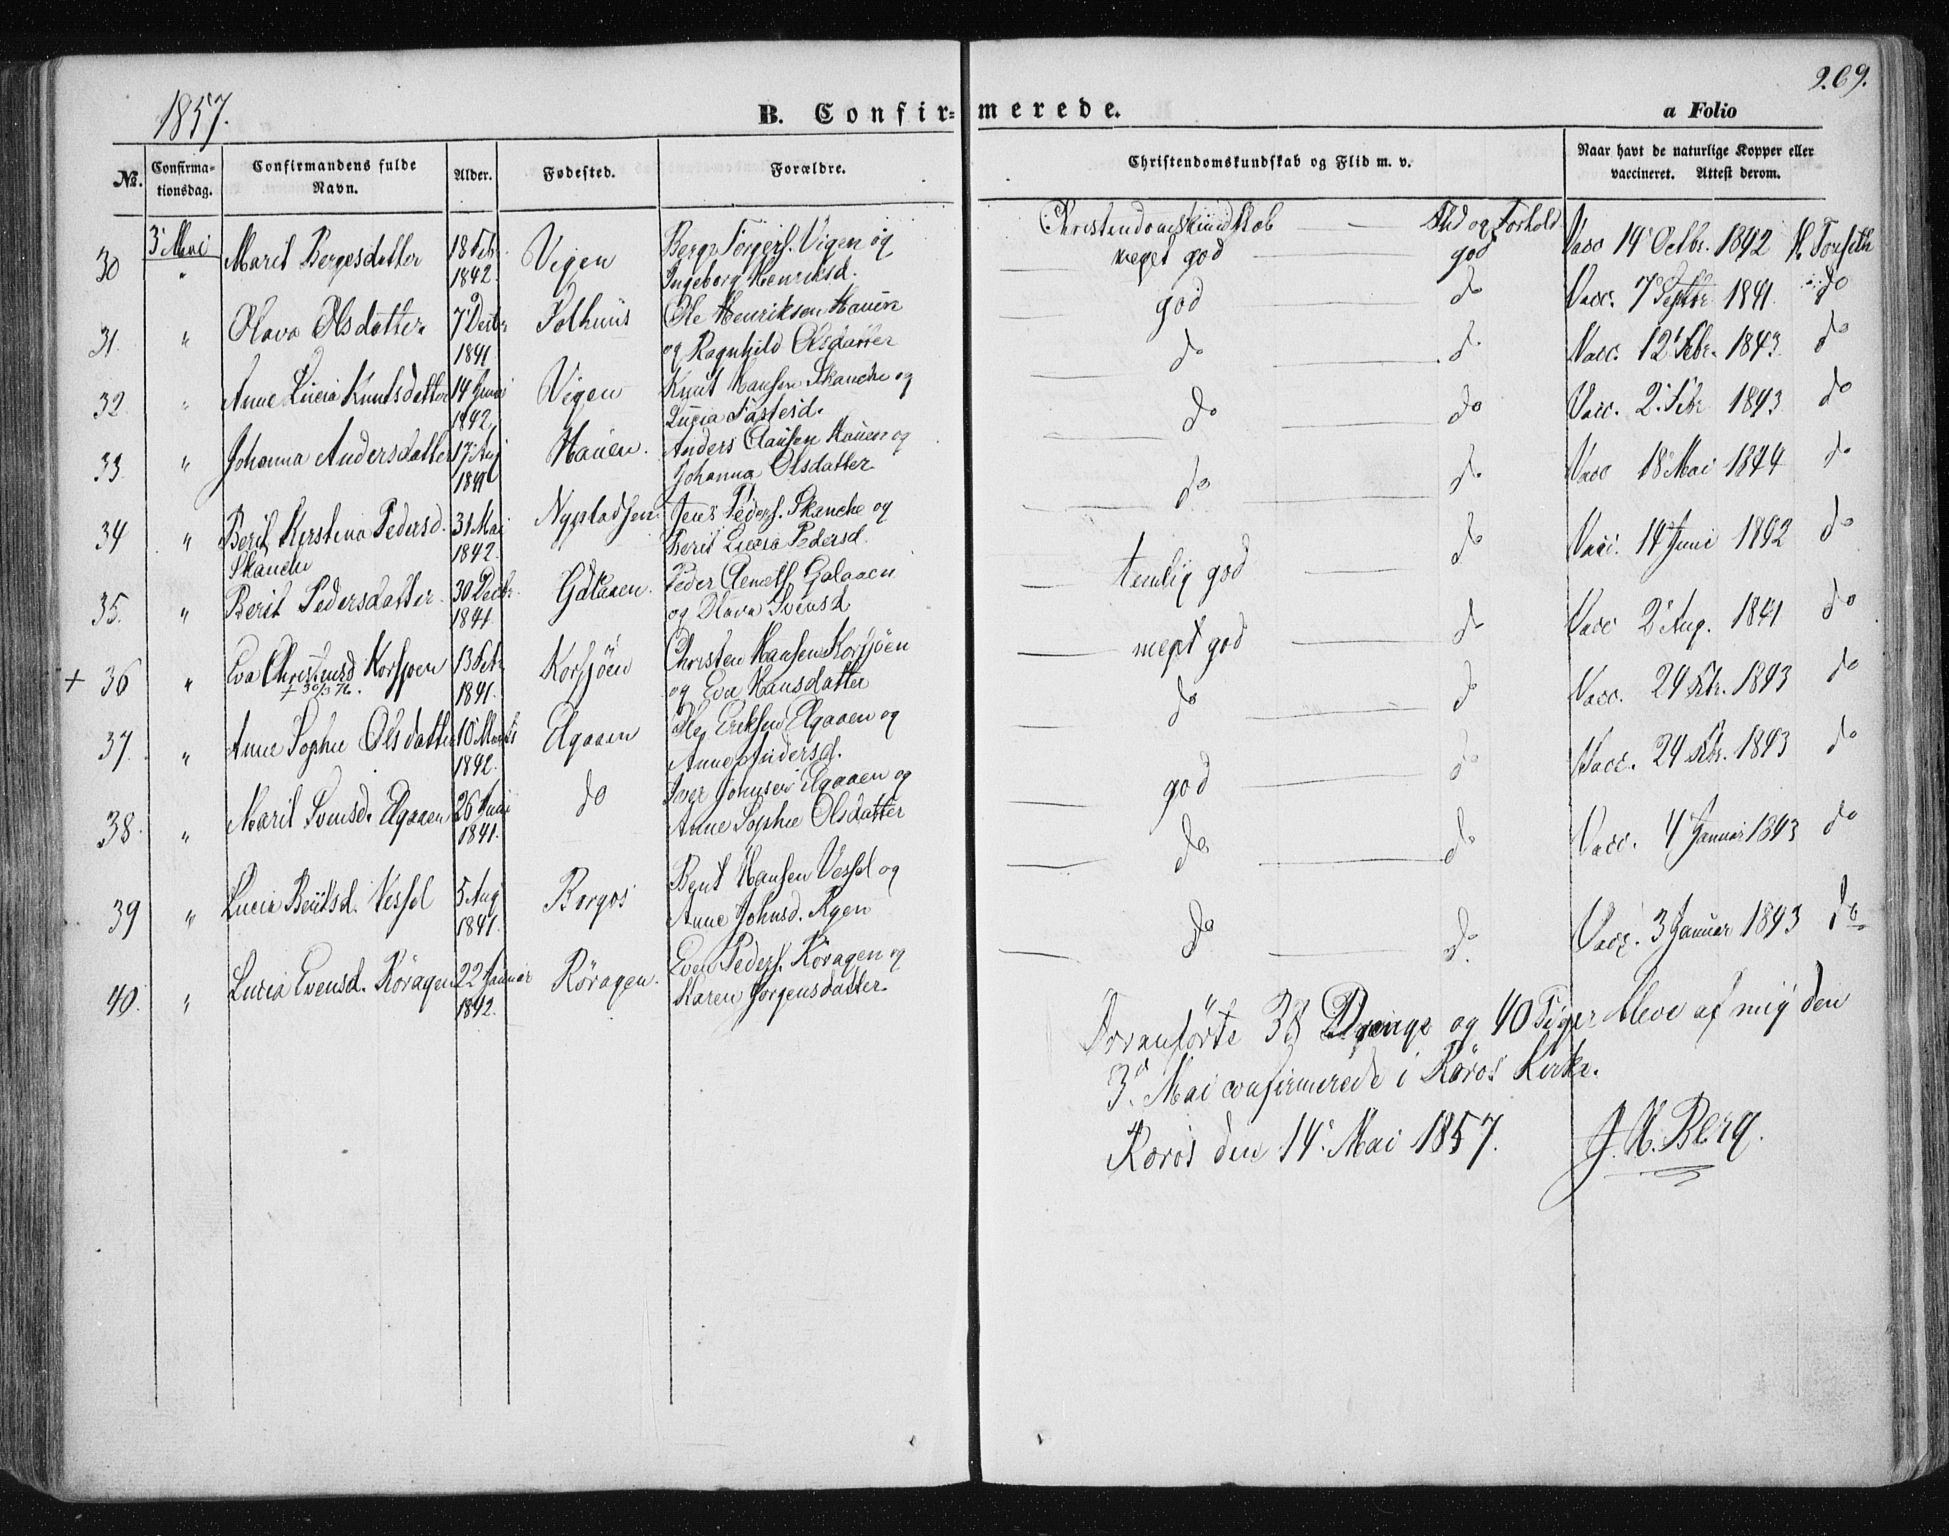 1857.
B. Confirmerede.
a Folio
269.
No. Confirmationsdag. Confirmandens fulde Navn. Alder. Fødested. Forældre. Christendomskundskab og Flid m. v. Naar havt de naturlige Kopper eller vaccineret. Attest derom.
Christendomskundskab — Flid og Forhold
30 3' Mai Marit Bergesdatter 18 Feb. Vigen og
" 1842 Vigen Ingeborg Henriksd. meget god god Vacc 14' Octbr. 1842
31. " Olava Olsdatter 7' Decbr Ole Henriksen Hauen god do Vacc. 7' Septbr 1841 do
1841 og Ragnhild Olsdatter
32. " Anne Lucia Knutsdatter 14 Vigen Knut Hansen Skanche og do do Vacc. 12' Febr. 1843. do
1842 Lucia
33 " Johanna Andersdatter 17 Aug Hauen. Anders Clausen Hauen og do do Vacc. 2' Febr 1843 do
1841 Johanna Olsdatter
34 " Berit Kirstina Pedersd. 31 Mai Jens Peders. Skanche og do do Vacc 18' Mai 1844 do
Skanche 1842. Berit Lucia Pedersd.
35. " Berit Pedersdatter 30 Decbr. Galaaen. Peder Galaaen temlig god do Vacc. 14' Juni 1842 do
1841 og Olava Svensd
+ 36 " Eva Christensd Korssjøen 13 Korssjöen Christen Hansen Korssjöen meget god do Vacc 2' Aug. 1841 do
+ 30/3 76. 1841. og Eva Hansdatter
37. " Anne Sophie Olsdatter 10' Marts Elgaaen Ole Eriksen Elgaaen og do do Vacc. 24 Febr. 1843 do
1842. Anne Andersd.
38. " Marit Svensd. Elgaaen 26 Juni do Iver Johnsen Elgaaen og god do Vacc. 24 Febr. 1843 do
1841. Anne Sophie Olsdatter
39 " Lucia Bentsd. Vessel 5 Aug Borgos Bent Hansen Vessel og do do Vacc. 4' Januar 1843 do
1841. Anne Johnsd. Rÿen
40. " Lucia Evensd. Röragen 22 Januar Röragen. Even Peders. Röragen og do do. Vacc. 3 Januar 1843 do
1842. Karen Jörgensdatter
Foranförte 38 Drenge og 40 Piger bleve af mig den
3' Mai confirmerede i Röros Kirke.
Röros den 14' Mai 1857. J. N. Berg.